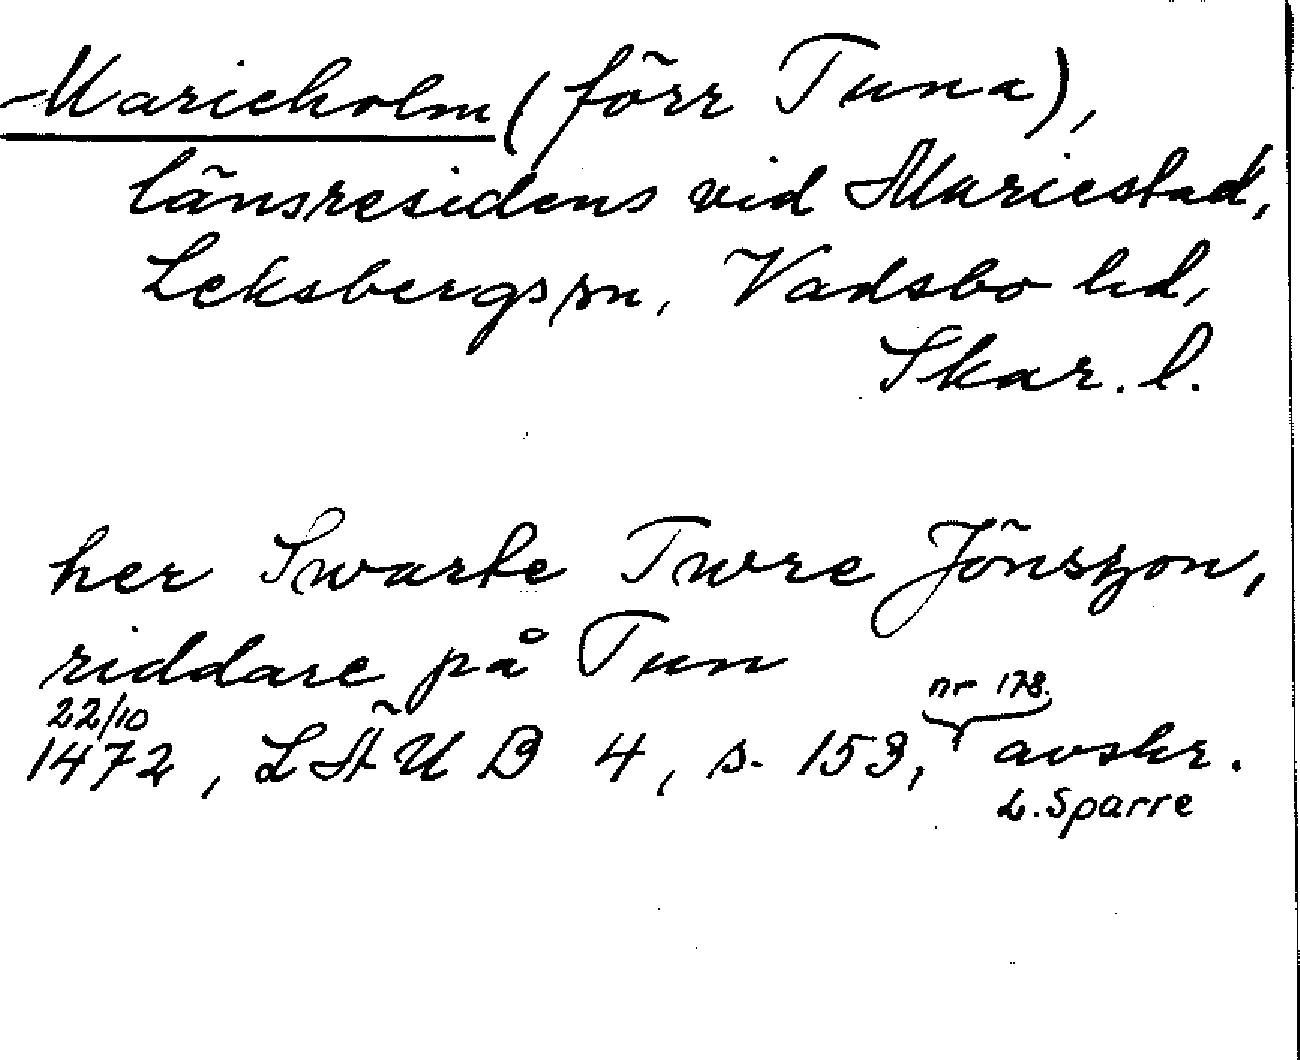 Marieholm (förr Tuna),
länsresidens vid Mariestad,
Leksbergs sn, Vadsbo hd,
Skar. l.
her Swarte Twre Jönszon,
riddare på Tun
22/10 nr 178.
1472, LÄUB 4, s. 153, avskr.
L. Sparre